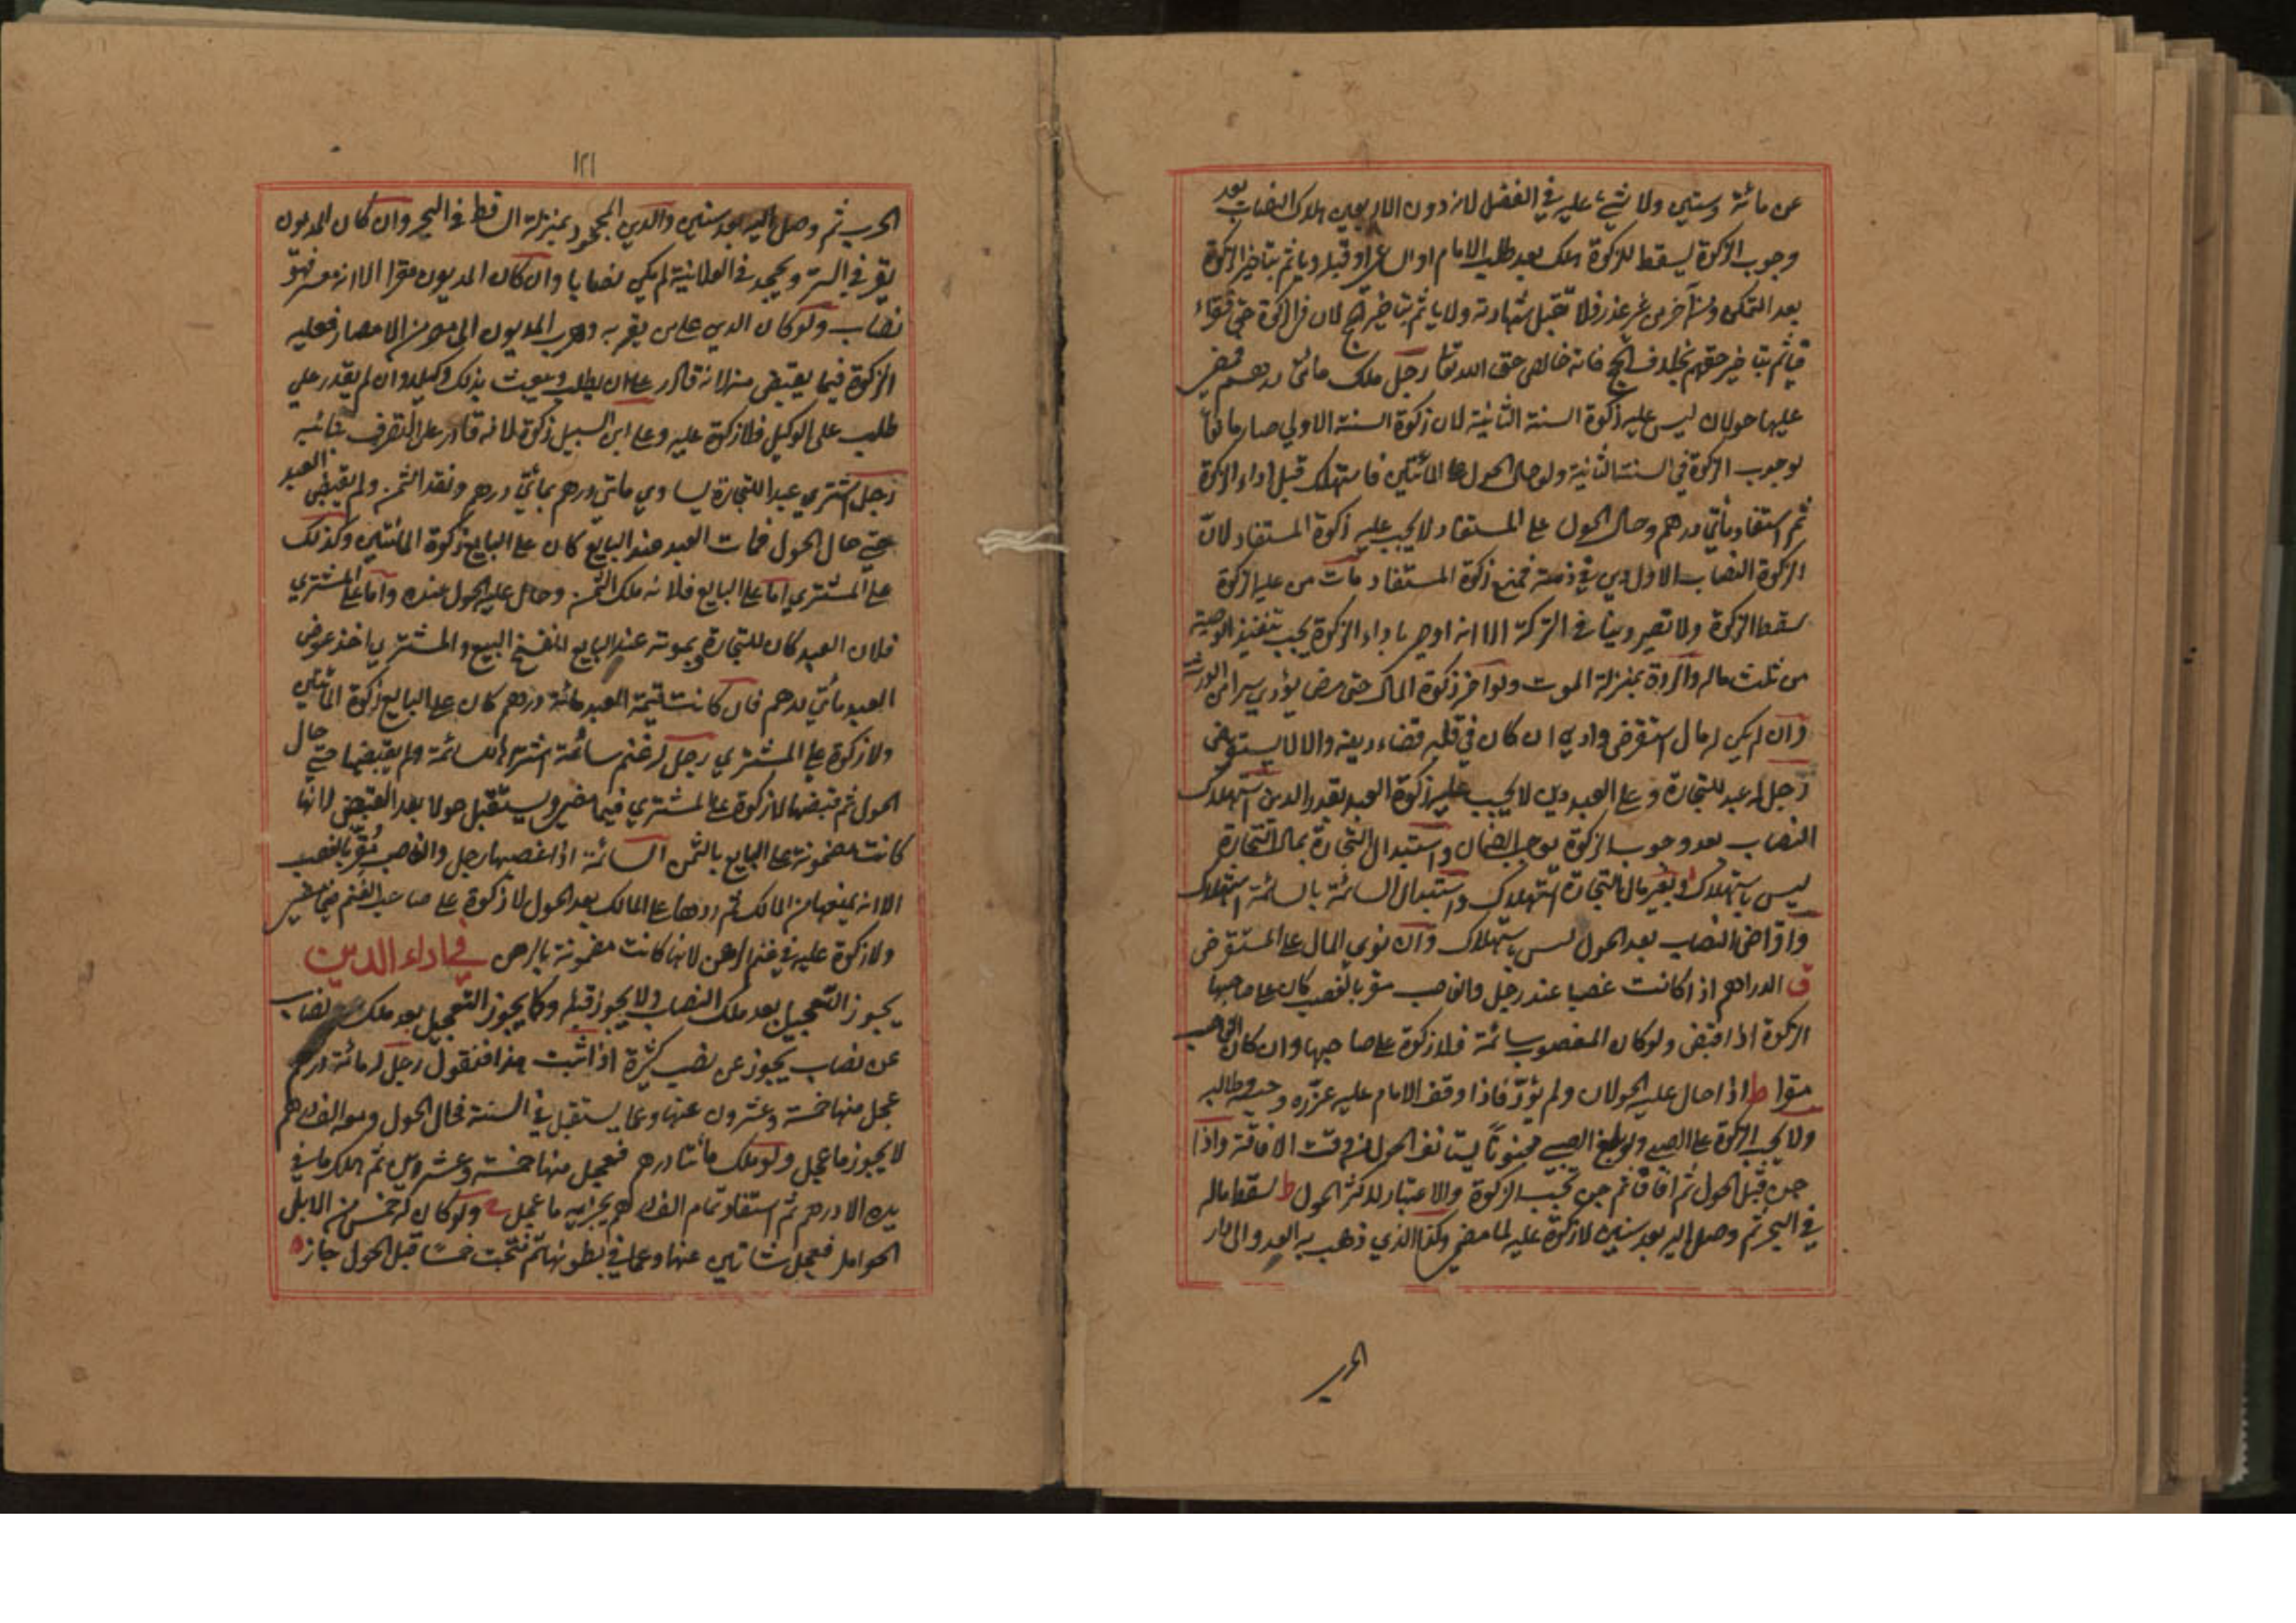 عن مائة وستين ولا شيء عليه في الفضل لانه دون الاربعين هلاك النصاب بعد
وجوب الزكوة يسقط للزكوة هلك بعد طلب الامام او الساعي او قبله وياثم بتاخير الزكوة
بعد التمكن ومن آخر من غير عذر فلا تقبل شهادته ولا ياثم بتاخير الحج لان في الزكوة حق فقراء
فياثم بتاخير حقهم بخلاف الحج فانه خالص حق الله تعا رجل ملك مائتي درهم فمضى
عليها حولان ليس عليه زكوة السنة الثانية لان زكوة السنة الاولي صار مانعا
لوجوب الزكوة في السنة الثانية ولو حال الحول علي المائتين فاستهلك قبل اداء الزكوة
ثم استفاد مأتي درهم وحال الحول علي المستفاد لا يجب عليه زكوة المستفاد لانّ
الزكوة النصاب الاول دين في ذمته فمنع زكوة المستفاد مات من عليه الزكوة
سقط الزكوة ولا تصير دينا في التركة الا انه اوصى باداء الزكوة يجب تنفيذ الوصية
من ثلث ماله والردة بمنزلة الموت ولو آخر زكوة المال حتى مرض يؤدي سرا من الورثة
وان لم يكن له مال استقرض وادي ان كان في قلبه قضاء دينه والا لا يستقرض
رجل له عبد للتجارة و علي العبد دين لا يجب عليه زكوة العبد بقدر الدين استهلاك
النصاب بعد وجوب الزكوة يوجب الضمان واستبدال التجارة بمال التجارة
ليس باستهلاك وبغير مال التجارة استهلاك واستبدال السائمة بالسائمة استهلاك
واقراض النصاب بعد الحول ليس باستهلاك وان توي المال علي المستقرض
ق الدراهم اذا كانت غصبا عند رجل والغاصب مقر بالغصب كان علي صاحبها
الزكوة اذا قبض ولو كان المغصوب سائمة فلا زكوة علي صاحبها وان كان الغاصب
مقرا ط اذا حال عليه الحولان ولم يؤدّ فاذا وقف الامام عليه عزّره وحبسه وطالبه
ولا يجب الزكوة علي الصبي ولو بلغ الصبي مجنوناً يستانف الحول من وقت الافاقة واذا
جن قبل الحول ثم افاق ثم جن تجب الزكوة والاعتبار لاكثر الحول ط سقط ماله
في البحر ثم وصل اليه بعد سنين لا زكوة عليه لما مضى وكذا الذي ذهب به العدو الى دار
الحرب
١٢١
الحرب ثم وصل اليه بعد سنين والدين المجحود بمنزلة الساقط في البحر وان كان المديون
يقر في السر و يجحد في العلانية لم يكن نصابا وان كان المديون مقرا الا انه معسر فهو
نصاب ولو كان الدين علي من يقر به وهرب المديون الى مصر من الامصار فعليه
الزكوة فيما يقبض منه لانه قادر علي ان يطلب ويبعث بذلك وكيلا وان لم يقدر علي
طلب علي الوكيل فلا زكوة عليه وعلي ابن السبيل زكوة لانه قادر علي التصرف بنائبه
رجل اشتري عبدا للتجارة يساوي مائتي درهم بمائتي درهم ونقد الثمن ولم يقبض العبد
حتي حال الحول فمات العبد عند البايع كان علي البايع زكوة المائتين وكذلك
علي المشتري اما علي البايع فلانه ملك الثمن وحال عليه الحول عنده واما علي المشتري
فلان العبد كان للتجارة وبموته عند البايع انفسخ البيع والمشتري اخذ عوض
العبد مأتي درهم فان كانت قيمة العبد مائة درهم كان علي البايع زكوة المائتين
ولا زكوة علي المشتري رجل له غنم سائمة اشتراها للسائمة ولم يقبضها حتي حال
الحول ثم قبضها لا زكوة علي المشتري فيما مضى ويستقبل حولا بعد القبض لانها
كانت مضمونة علي البايع بالثمن السائمة اذا غصبها رجل والغاصب مُقرّ بالغصب
الا انه يمنعها من المالك ثم ردها علي المالك بعد الحول لا زكوة علي صاحب الغنم فيما مضى
ولا زكوة عليه في غنم الرهن لانها كانت مضمونة بالرهن في اداء الدين
يجوز التعجيل بعد ملك النصاب ولا يجوز قبله وكما يجوز التعجيل بعد ملك نصاب
عن نصاب يجوز عن نصب كثيرة اذا ثبت هذا فنقول رجل له مائة درهم
عجل منها خمسة وعشرون عنها وعما يستقبل في السنة فحال الحول ومعه الف درهم
لا يجوز ما عجل ولو ملك مأئتا درهم فعجل منها خمسة وعشرين ثم هلك ما في
يده الا درهم ثم استفاد تمام الف درهم يجزيه ما عجل ولو كان له خمس من الابل
الحوامل فعجل شاتين عنها وعما في بطونها ثم نتجت خمسا قبل الحول جاز